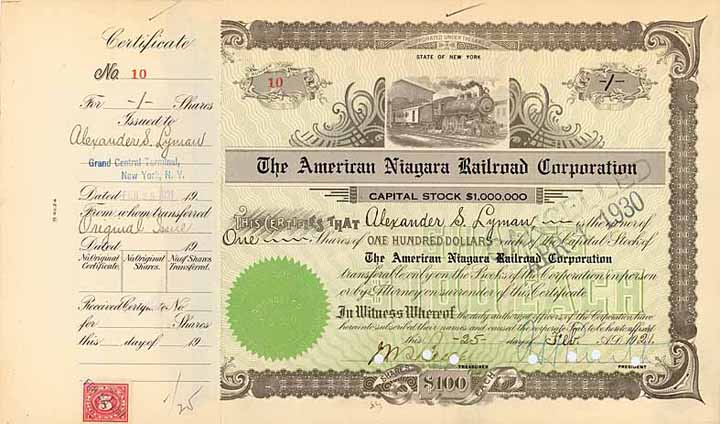 Certificate
No. 10
For -1- Shares
Issued to
Alexander S. Lyman
Grand Central Terminal,
New York, N. Y.
Dated FEB 25 1921 19
From whom transferred
Original Issue
Dated 19
No. Original Certificate. No. Original Shares. No. of Shares Transferred.
Received Certificate No
for Shares
this day of 19
5
1/25
INCORPORATED UNDER THE LAWS
STATE OF NEW YORK
10
-1-
The American Niagara Railroad Corporation
CAPITAL STOCK $1,000,000
THIS CERTIFIES THAT Alexander S. Lyman is the owner of
One Shares of ONE HUNDRED DOLLARS each of the Capital Stock of
The American Niagara Railroad Corporation
transferable only on the Books of the Corporation in person
or by Attorney on surrender of this Certificate
In Witness Whereof the duly authorized officers of the Corporation have
hereunto subscribed their names and caused the corporate Seal to be hereto affixed
this -25- day of Feb. A.D. 1921.
TREASURER
PRESIDENT
SHARES $100 EACH
CANCELLED
1930